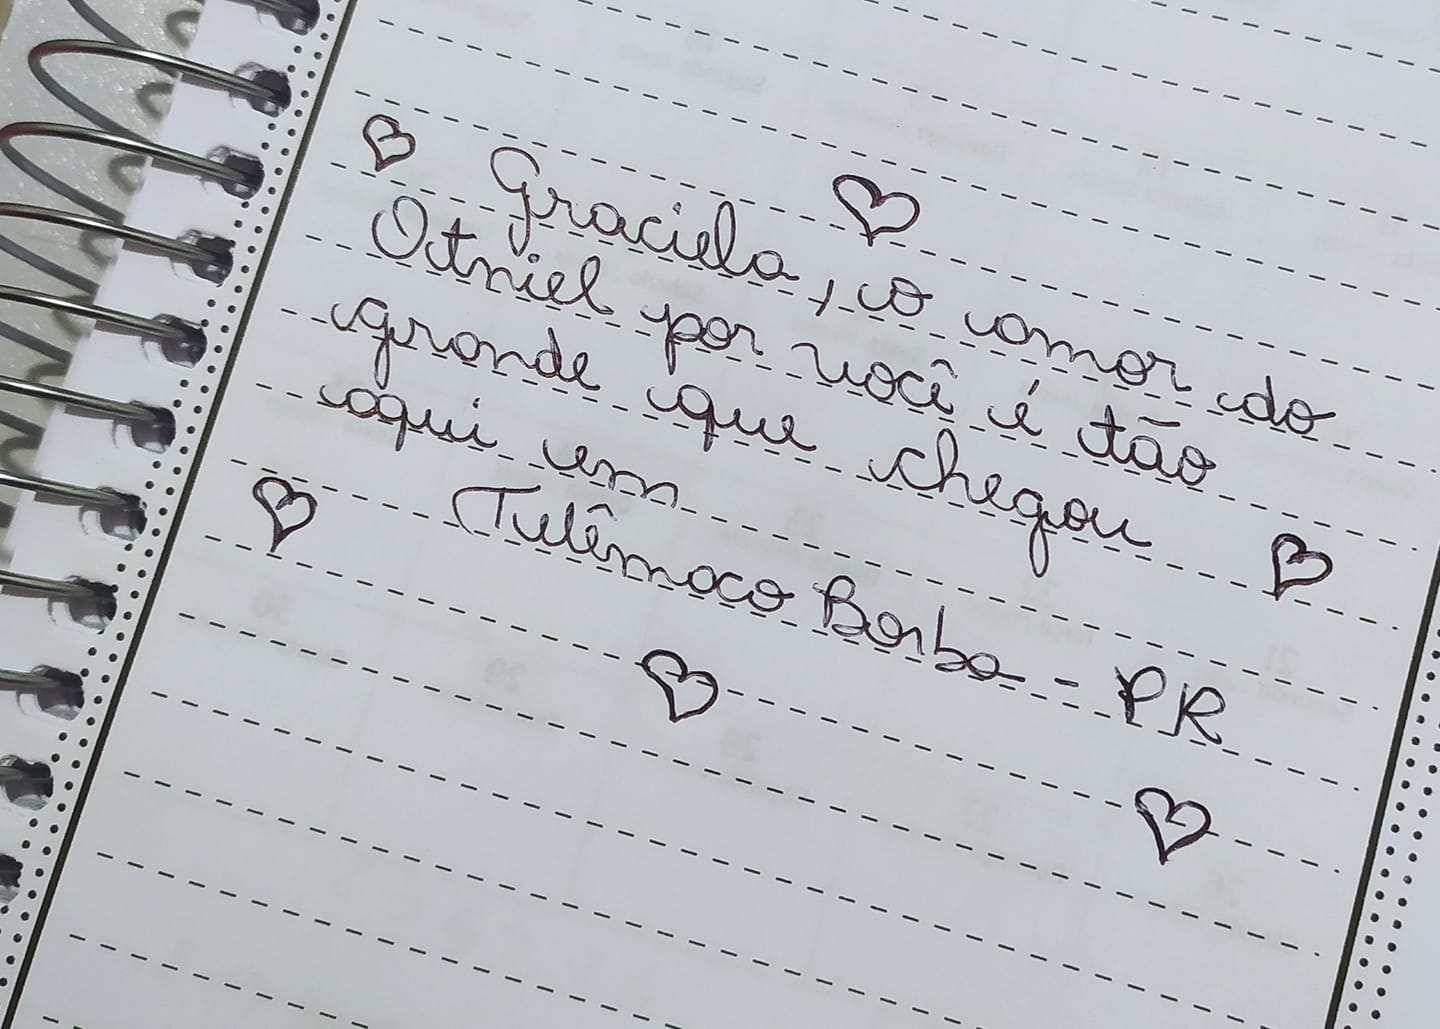 Graciela, o amor do
Otniel por você é tão
grande que chegou
aqui em
Telêmaco Borba - PR